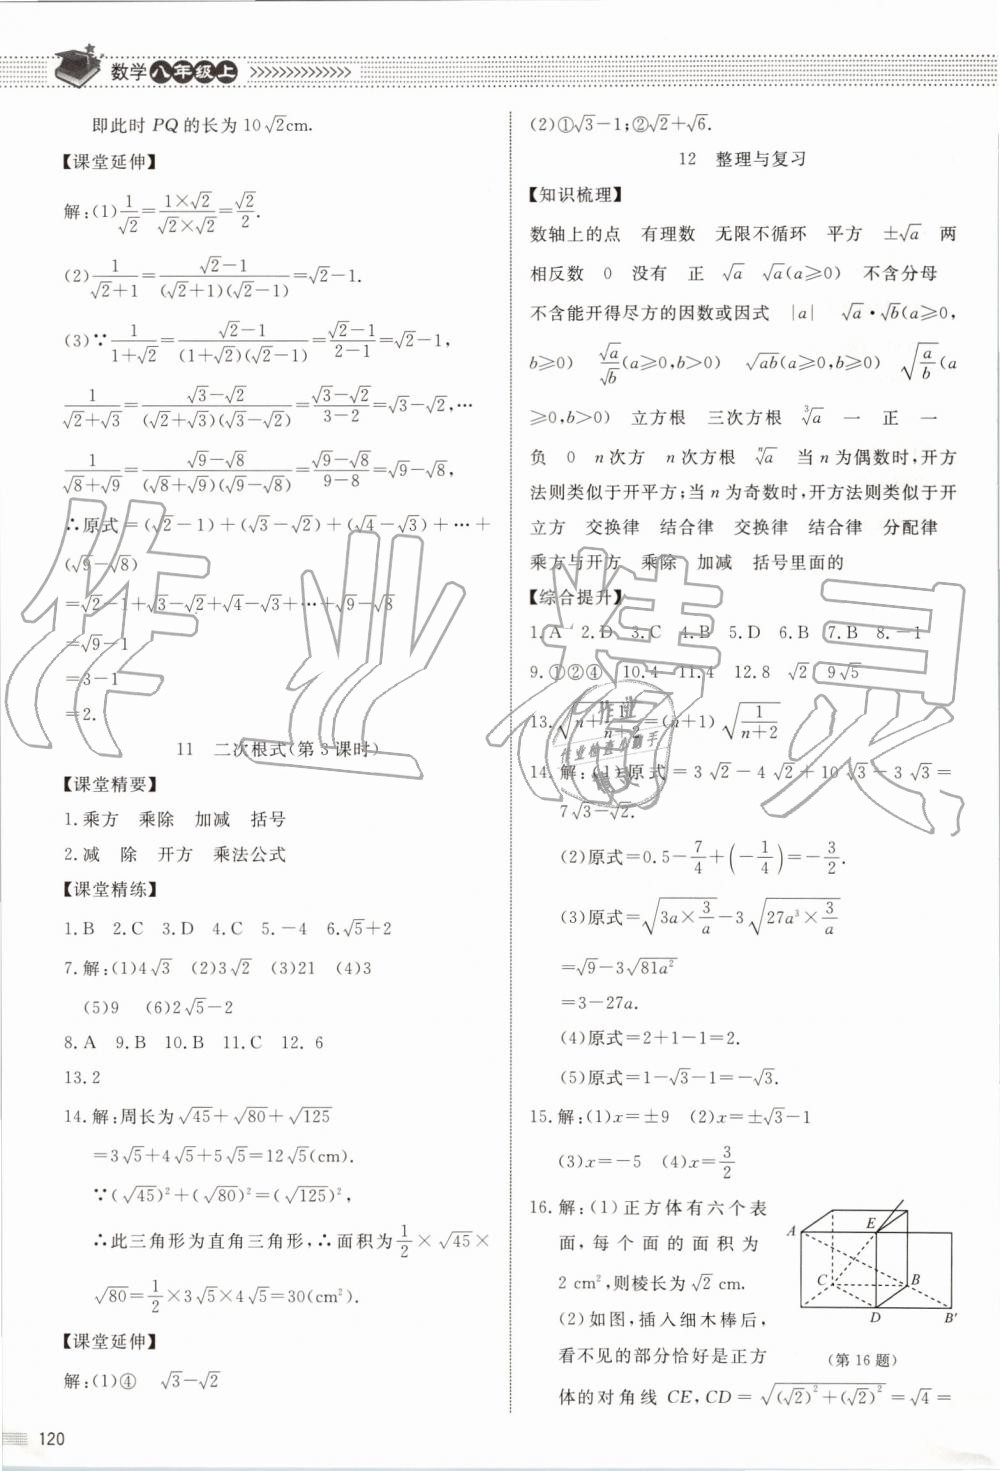 数学八年级上
即此时 PQ 的长为 10√2cm.
【课堂延伸】
解:(1)1/√2=(1×√2)/(√2×√2)=√2/2.
(2)1/(√2+1)=(√2-1)/((√2+1)(√2-1))=√2-1.
(3)∵1/(1+√2)=(√2-1)/((1+√2)(√2-1))=(√2-1)/(2-1)=√2-1,
1/(√2+√3)=(√3-√2)/((√2+√3)(√3-√2))=(√3-√2)/(3-2)=√3-√2,…
1/(√8+√9)=(√9-√8)/((√8+√9)(√9-√8))=(√9-√8)/(9-8)=√9-√8,
∴原式=(√2-1)+(√3-√2)+(√4-√3)+…+
(√9-√8)
=√2-1+√3-√2+√4-√3+…+√9-√8
=√9-1
=3-1
=2.
11 二次根式(第3课时)
【课堂精要】
1.乘方 乘除 加减 括号
2.减 除 开方 乘法公式
【课堂精练】
1.B 2.C 3.D 4.C 5.-4 6.√5+2
7.解:(1)4√3 (2)3√2 (3)21 (4)3
(5)9 (6)2√5-2
8.A 9.B 10.B 11.C 12.6
13.2
14.解:周长为√45+√80+√125
=3√5+4√5+5√5=12√5(cm).
∵(√45)²+(√80)²=(√125)²,
∴此三角形为直角三角形,∴面积为1/2×√45×
√80=1/2×3√5×4√5=30(cm²).
【课堂延伸】
解:(1)④ √3-√2
120
(2)①√3-1;②√2+√6.
12 整理与复习
【知识梳理】
数轴上的点 有理数 无限不循环 平方 ±√a 两
相反数 0 没有 正 √a √a(a≥0) 不含分母
不含能开得尽方的因数或因式 |a| √a·√b(a≥0,
b≥0) √a/√b(a≥0,b>0) √ab(a≥0,b≥0) √(a/b)(a
≥0,b>0) 立方根 三次方根 ∛a 一 正 一
负 0 n次方 n次方根 ⁿ√a 当n为偶数时,开方
法则类似于开平方;当n为奇数时,开方法则类似于开
立方 交换律 结合律 交换律 结合律 分配律
乘方与开方 乘除 加减 括号里面的
【综合提升】
1.A 2.D 3.C 4.B 5.D 6.B 7.B 8.-1
9.①②④ 10.4 11.4 12.8 √2 9√5
13.√(n+1/(n+2))=(n+1)√(1/(n+2))
14.解:(1)原式=3√2-4√2+10√3-3√3=
7√3-√2.
(2)原式=0.5-7/4+(-1/4)=-3/2.
(3)原式=√(3a×3/a)-3√(27a³×3/a)
=√9-3√(81a²)
=3-27a.
(4)原式=2+1-1=2.
(5)原式=1-√3-1=-√3.
15.解:(1)x=±9 (2)x=±√3-1
(3)x=-5 (4)x=3/2
16.解:(1)正方体有六个表
面,每个面的面积为
2 cm²,则棱长为√2 cm.
(2)如图,插入细木棒后,
看不见的部分恰好是正方
体的对角线 CE,CD=√((√2)²+(√2)²)=√4=
A E
C B
D B′
(第16题)
作业精灵
作业
作业检查小助手
精灵